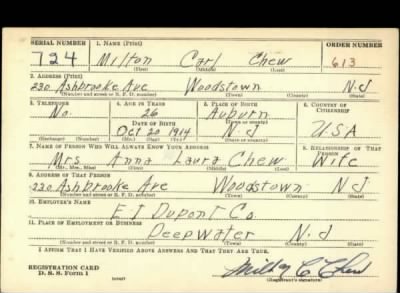 SERIAL NUMBER 1. NAME (Print) ORDER NUMBER
724 Milton Carl Chew 613
(First) (Middle) (Last)
2. ADDRESS (Print)
220 Ashbrooke Ave Woodstown N.J
(Number and street or R. F. D. number) (Town) (County) (State)
3. TELEPHONE 4. AGE IN YEARS 5. PLACE OF BIRTH 6. COUNTRY OF CITIZENSHIP
No. 26 Auburn
DATE OF BIRTH (Town or county)
Oct 20 1914 N.J USA
(Exchange) (Number) (Mo.) (Day) (Yr.) (State or country)
7. NAME OF PERSON WHO WILL ALWAYS KNOW YOUR ADDRESS 8. RELATIONSHIP OF THAT PERSON
Mrs. Anna Laura Chew Wife
(Mr., Mrs., Miss) (First) (Middle) (Last)
9. ADDRESS OF THAT PERSON
220 Ashbrooke Ave Woodstown NJ
(Number and street or R. F. D. number) (Town) (County) (State)
10. EMPLOYER'S NAME
E I Dupont Co.
11. PLACE OF EMPLOYMENT OR BUSINESS
Deepwater N.J
(Number and street or R. F. D. number) (Town) (County) (State)
I AFFIRM THAT I HAVE VERIFIED ABOVE ANSWERS AND THAT THEY ARE TRUE.
REGISTRATION CARD
D. S. S. Form 1 (over) (Registrant's signature)